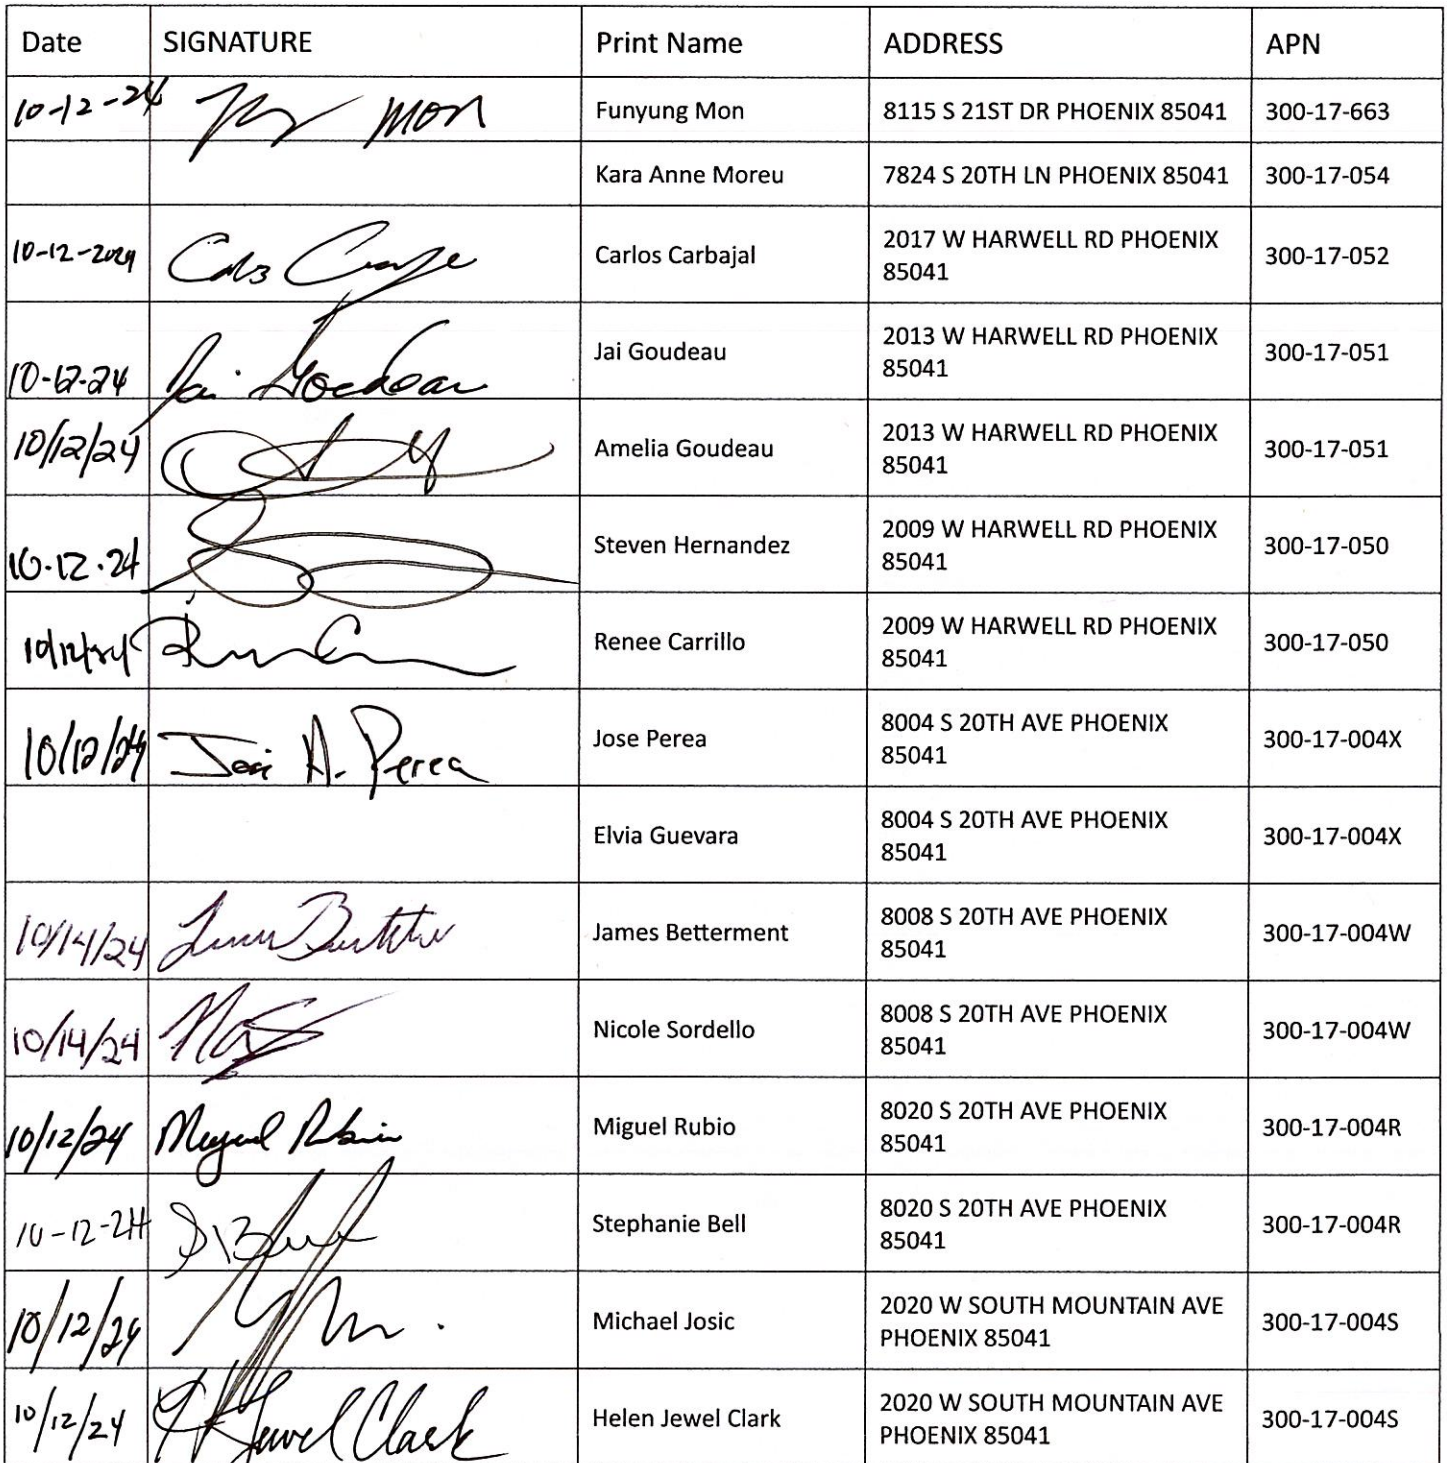 Date SIGNATURE Print Name ADDRESS APN
10-12-24 Mon Funyung Mon 8115 S 21ST DR PHOENIX 85041 300-17-663
Kara Anne Moreu 7824 S 20TH LN PHOENIX 85041 300-17-054
10-12-2024 Carlos Carbajal 2017 W HARWELL RD PHOENIX
85041 300-17-052
10-12-24 Jai Goudeau Jai Goudeau 2013 W HARWELL RD PHOENIX
85041 300-17-051
10/12/24 Amelia Goudeau 2013 W HARWELL RD PHOENIX
85041 300-17-051
10.12.24 Steven Hernandez 2009 W HARWELL RD PHOENIX
85041 300-17-050
10/12/24 Renee Carrillo 2009 W HARWELL RD PHOENIX
85041 300-17-050
10/12/24 Jose A. Perea Jose Perea 8004 S 20TH AVE PHOENIX
85041 300-17-004X
Elvia Guevara 8004 S 20TH AVE PHOENIX
85041 300-17-004X
10/14/24 James Betterment 8008 S 20TH AVE PHOENIX
85041 300-17-004W
10/14/24 Nicole Sordello 8008 S 20TH AVE PHOENIX
85041 300-17-004W
10/12/24 Miguel Rubio Miguel Rubio 8020 S 20TH AVE PHOENIX
85041 300-17-004R
10-12-24 Stephanie Bell 8020 S 20TH AVE PHOENIX
85041 300-17-004R
10/12/24 Michael Josic 2020 W SOUTH MOUNTAIN AVE
PHOENIX 85041 300-17-004S
10/12/24 H Jewel Clark Helen Jewel Clark 2020 W SOUTH MOUNTAIN AVE
PHOENIX 85041 300-17-004S